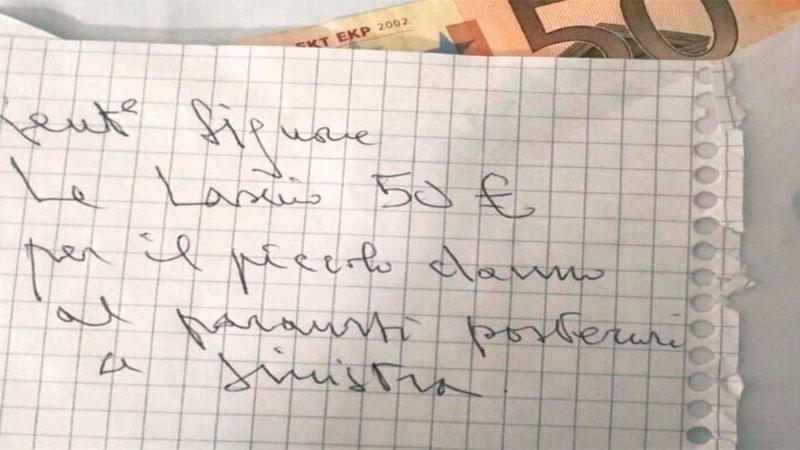 EKT EKP 2002
50
Gent^e Signore
Le Lascio 50 €
per il piccolo danno
al paraurti posteriori
a sinistra.